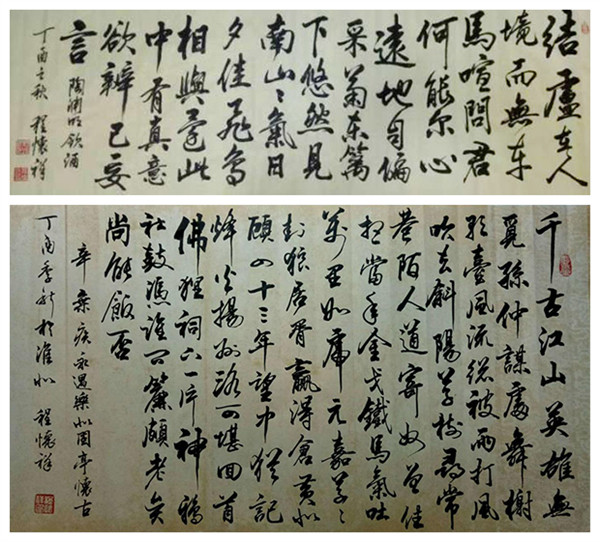 结廬在人
境而無车
馬喧問君
何能尔心
遠地自偏
采菊东篱
下悠然見
南山〻氣日
夕佳飛鸟
相與還此
中有真意
欲辨已忘
言
陶渊明饮酒
丁酉之秋 程懷祥
千古江山英雄無
覓孫仲謀處舞榭
歌臺風流總被雨打風
吹去斜陽草樹尋常
巷陌人道寄奴曾住
想當年金戈鐵馬氣吞
萬里如虎元嘉草〻
封狼居胥贏得倉黄北
顧四十三年望中猶記
烽火揚州路可堪回首
佛狸祠下一片神鴉
社鼓憑誰問廉頗老矣
尚能飯否
辛棄疾永遇樂北固亭懷古
丁酉季秋於淮北 程懷祥